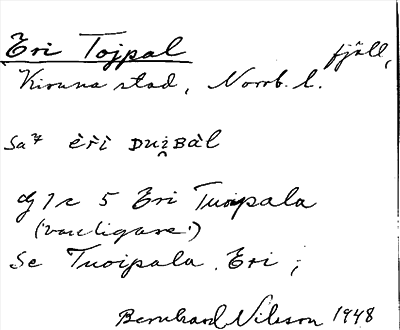 Eri Tojpal fjäll,
Kiruna stad, Norrb. l.
èrì DuiBàl
5 Eri Tuoipala
(vanligare!)
Se Tuoipala, Eri;
Bernhard Nilsson 1948